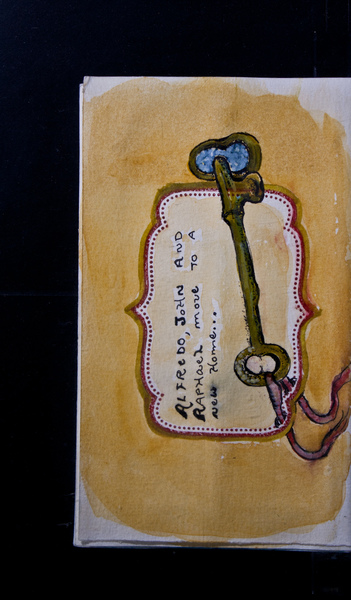 ALFREDO, JOHN AND
RAPHAEL MOVE TO A
NEW HOME...